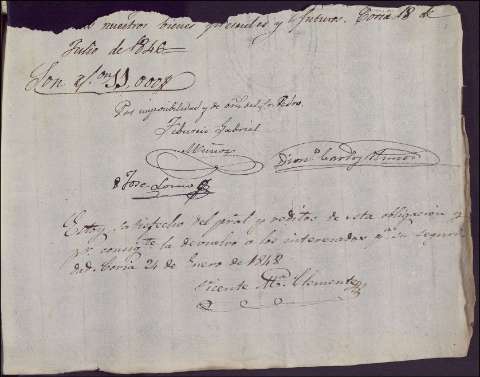 nuestros bienes presentes y futuros. Coria 18 de
Julio de 1846
Son rs. on 11.000 rs
Por imposibilidad y de orden del Sr. Pedro.
Tiburcio Gabriel
Muñoz
Dion.º Carlos Muñoz
Jose
Estoy satisfecho del pñal y reditos de esta obligacion y
por consig.te la devuelvo a los interesados p.a su seguri
dad. Coria 24 de Enero de 1848
Vicente M.a Clemente